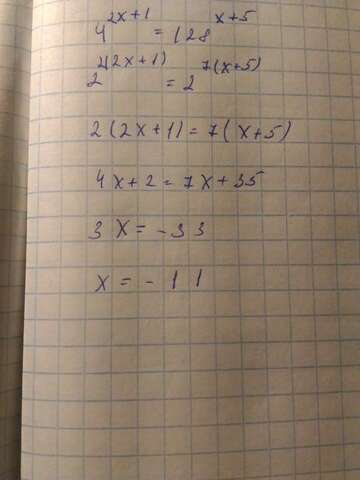 4^{2x+1} = 128^{x+5}
2^{2(2x+1)} = 2^{7(x+5)}
2(2x+1) = 7(x+5)
4x+2 = 7x+35
3x = -33
x = -11